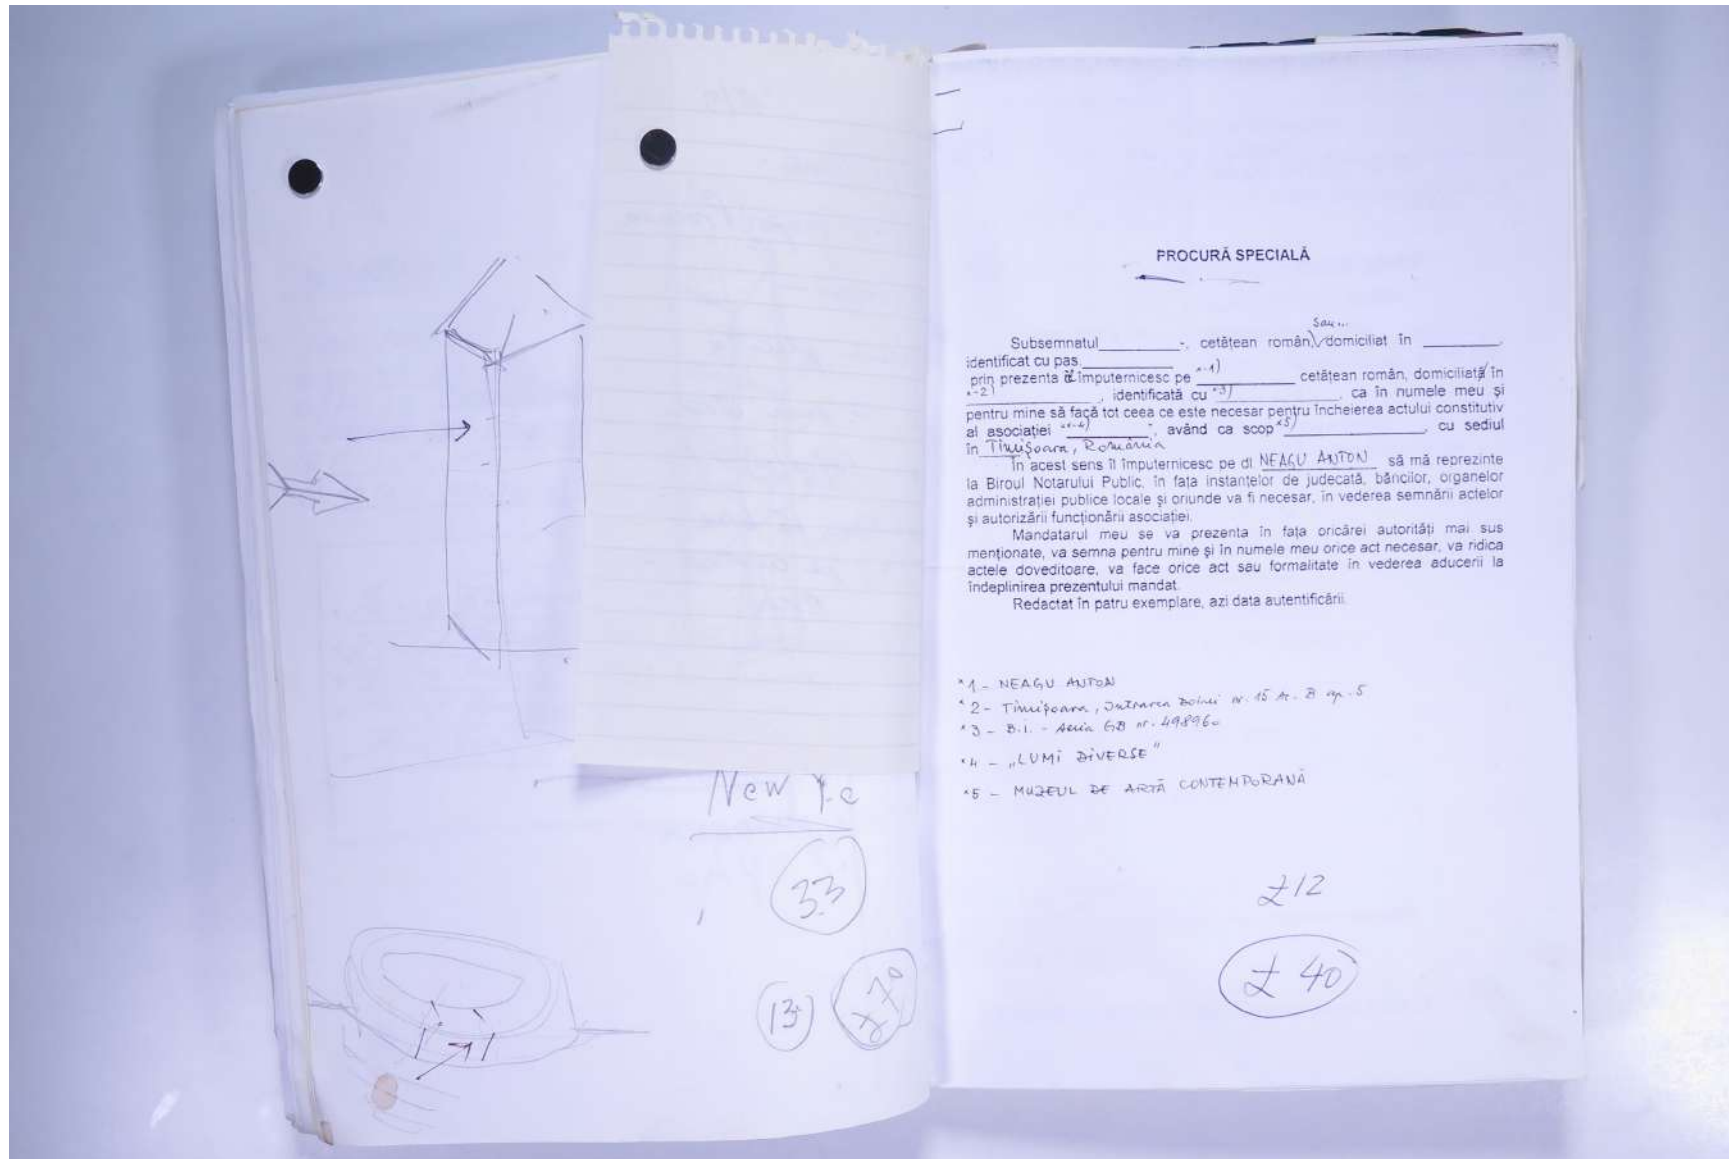 New
33
13
£70
PROCURĂ SPECIALĂ
sau...
Subsemnatul____________-, cetăţean român, domiciliat în __________,
identificat cu pas.____________
prin prezenta îl împuternicesc pe *-1) ____________ cetăţean român, domiciliată în
*-2) ____________, identificată cu *3) ____________, ca în numele meu şi
pentru mine să facă tot ceea ce este necesar pentru încheierea actului constitutiv
al asociaţiei *-4) ____________, având ca scop *5) ____________, cu sediul
în Timişoara, România
În acest sens îl împuternicesc pe dl. NEAGU ANTON să mă reprezinte
la Biroul Notarului Public, în faţa instanţelor de judecată, băncilor, organelor
administraţiei publice locale şi oriunde va fi necesar, în vederea semnării actelor
şi autorizării funcţionării asociaţiei.
Mandatarul meu se va prezenta în faţa oricărei autorităţi mai sus
menţionate, va semna pentru mine şi în numele meu orice act necesar, va ridica
actele doveditoare, va face orice act sau formalitate în vederea aducerii la
îndeplinirea prezentului mandat.
Redactat în patru exemplare, azi data autentificării.
*1 - NEAGU ANTON
*2 - Timişoara, Intrarea Doinei nr. 15 Ac. B ap. 5
*3 - B.i. - Seria GB nr. 498960
*4 - „LUMi DiVERSE"
*5 - MUZEUL DE ARTĂ CONTEMPORANĂ
£12
£40